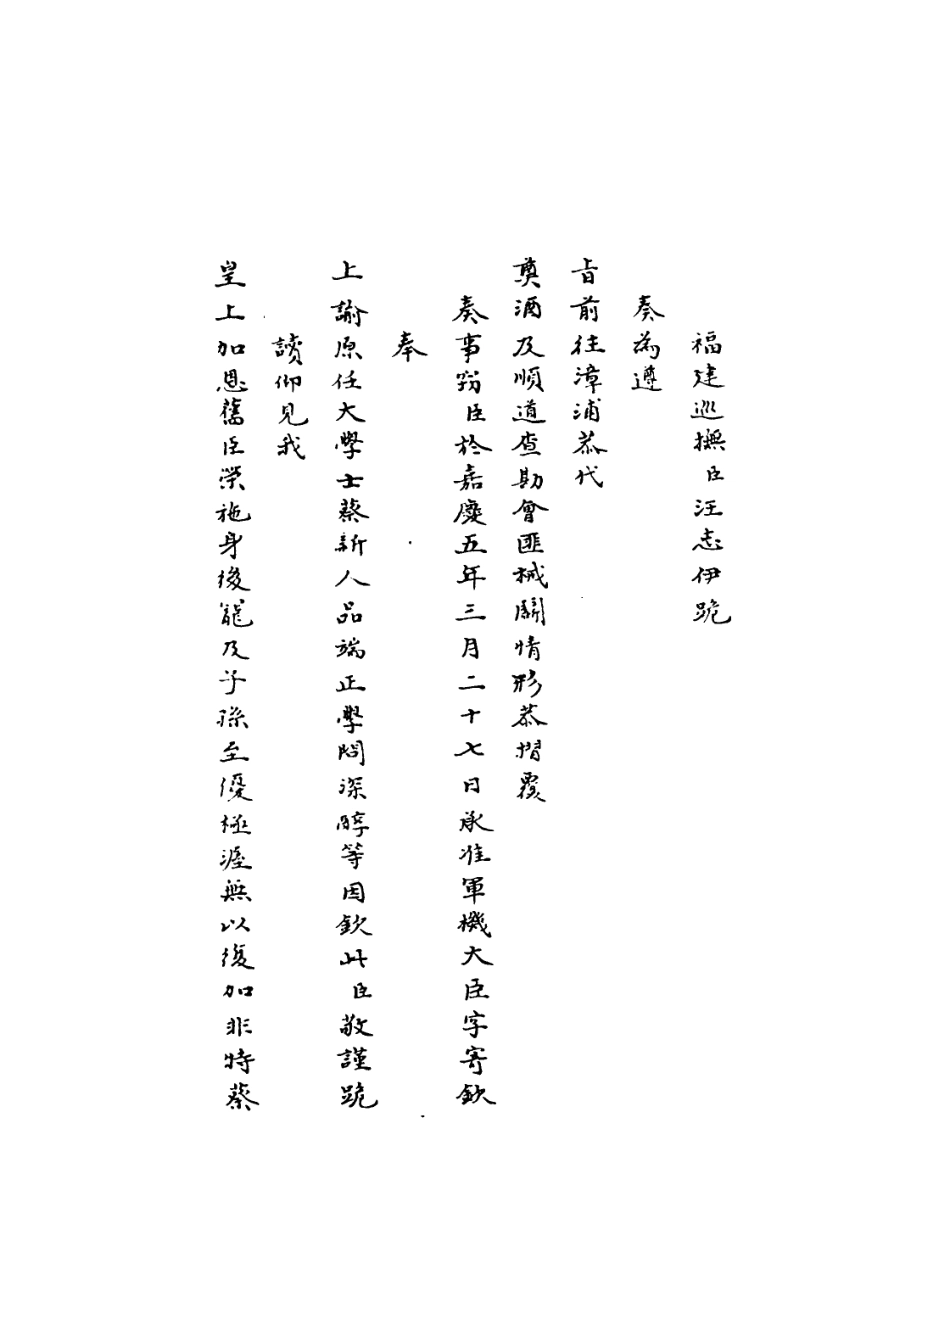 福建巡撫臣汪志伊跪
奏為遵
旨前往漳浦恭代
奠酒及順道查勘會匪械鬭情形恭摺覆
奏事竊臣於嘉慶五年三月二十七日承准軍機大臣字寄欽
奉
上諭原任大學士蔡新人品端正學問深醇等因欽此臣敬謹跪
讀仰見我
皇上加恩舊臣榮施身後寵及子孫至優極渥無以復加非特蔡